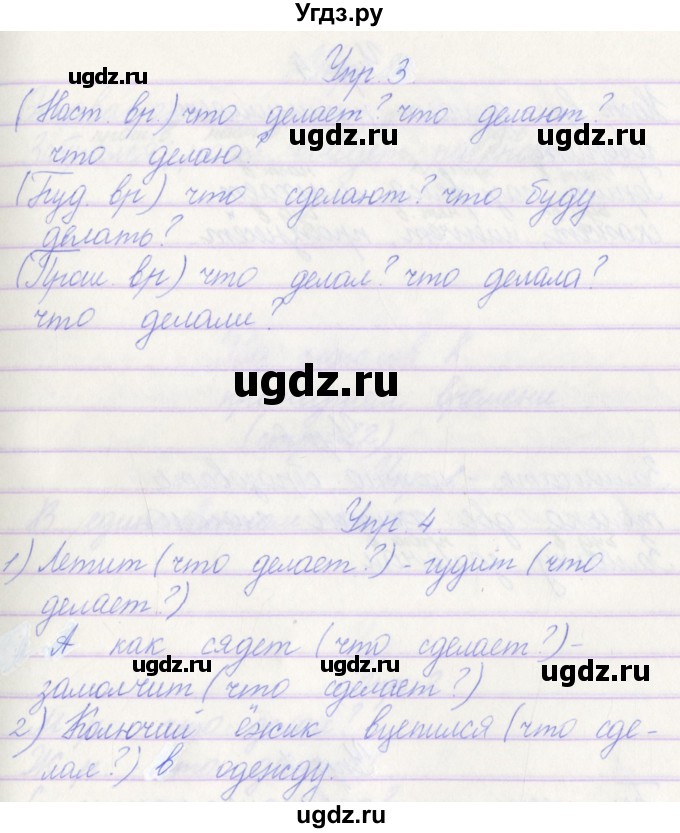 Угдз.ру
ugdz.ru
Упр. 3.
(Наст. вр.) что делает? что делают?
ugdz.ru
что делаю?
(Буд. вр) что сделают? что буду
делать?
(Прош. вр) что делал? что делала?
что делали?
ugdz.ru
Упр. 4.
1) Летит (что делает?) - гудит (что
делает?)
А как сядет (что сделает?) -
ugdz.ru ugdz.ru
замолчит (что сделает?)
2) Колючий ёжик вцепился (что сде-
лал?) в одежду.
ugdz.ru